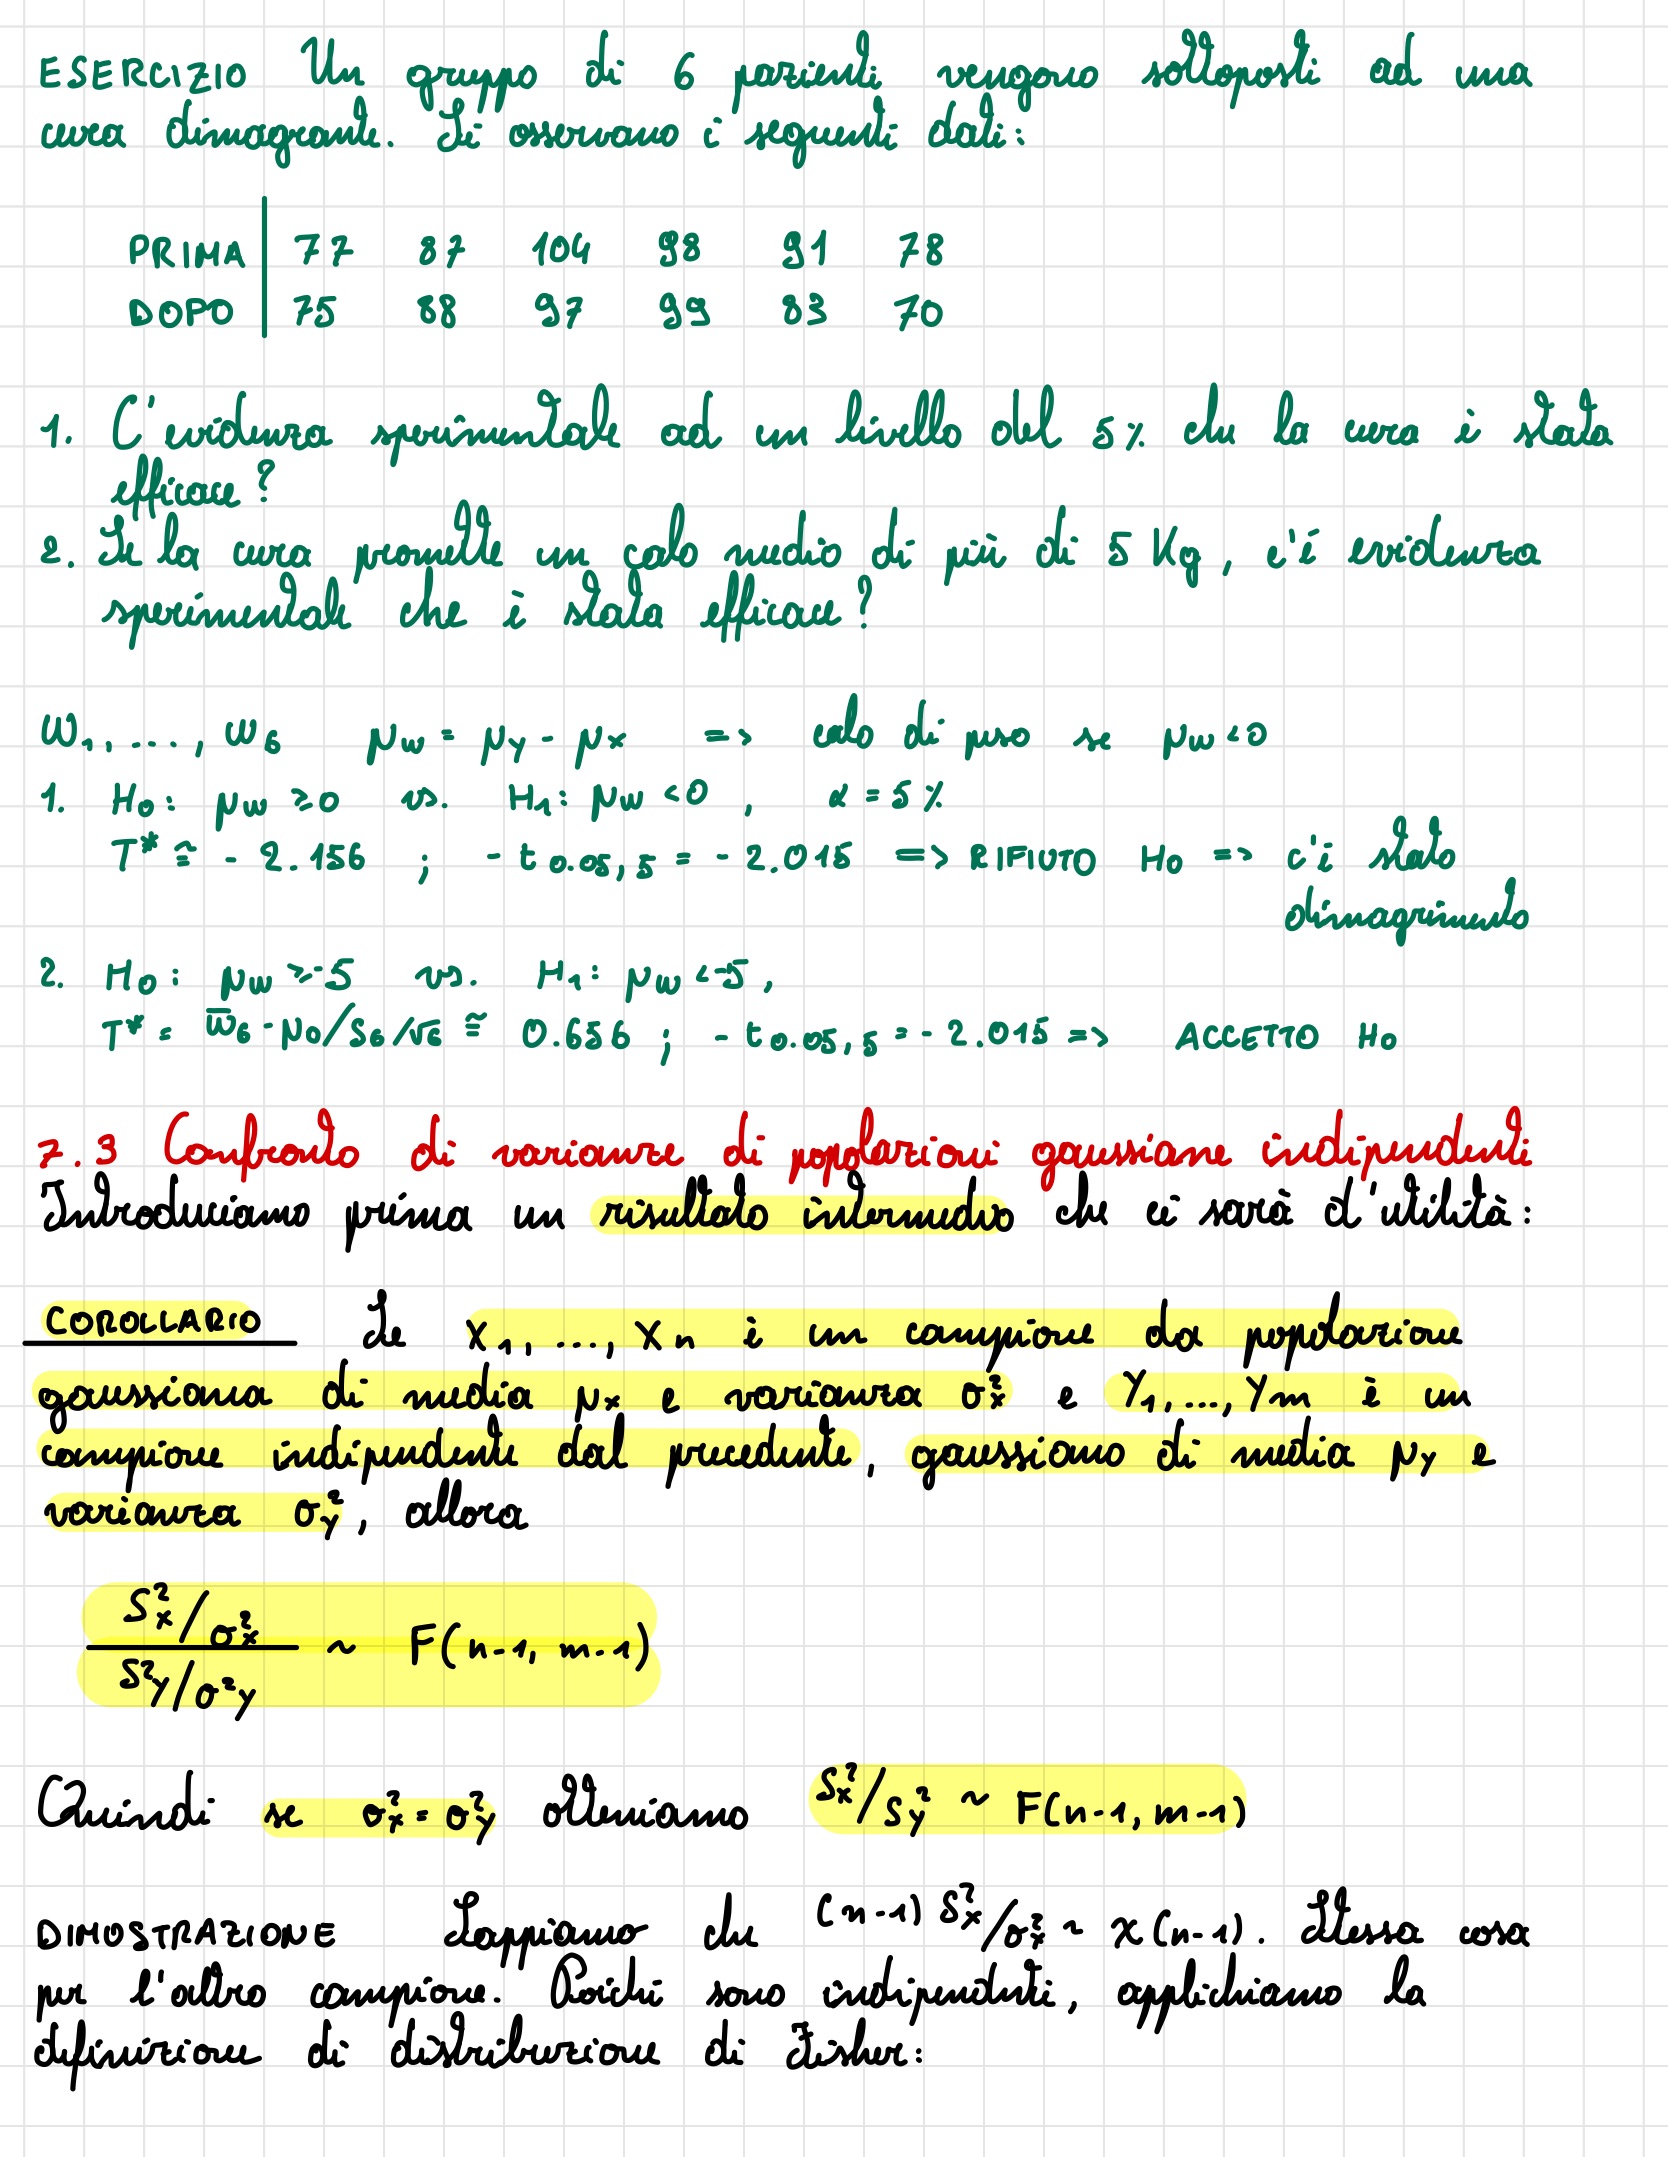 ESERCIZIO Un gruppo di 6 pazienti vengono sottoposti ad una
cura dimagrante. Si osservano i seguenti dati:
PRIMA | 77 87 104 98 91 78
DOPO | 75 88 97 99 83 70
1. C'evidenza sperimentale ad un livello del 5% che la cura è stata
efficace?
2. Se la cura promette un calo medio di più di 5 Kg, c'é evidenza
sperimentale che è stata efficace?
W₁, ..., W₆ μw = μy - μx => calo di peso se μw<0
1. H₀: μw ≥0 vs. H₁: μw <0, α = 5%
T* ≅ - 2.156 ; - t 0.05, 5 = - 2.015 => RIFIUTO H₀ => c'è stato
dimagrimento
2. H₀: μw ≥-5 vs. H₁: μw <-5,
T* = W̅₆ - μ₀/S₆/√6 ≅ 0.656 ; - t 0.05, 5 = - 2.015 => ACCETTO H₀
7.3 Confronto di varianze di popolazioni gaussiane indipendenti
Introduciamo prima un risultato intermedio che ci sarà d'utilità:
COROLLARIO Se X₁, ..., Xn è un campione da popolazione
gaussiana di media μx e varianza σ²x e Y₁, ..., Ym è un
campione indipendente dal precedente, gaussiano di media μy e
varianza σ²y, allora
S²x/σ²x
~ F(n-1, m-1)
S²y/σ²y
Quindi se σ²x = σ²y otteniamo S²x/S²y ~ F(n-1, m-1)
DIMOSTRAZIONE Sappiamo che (n-1) S²x/σ²x ~ χ(n-1). Stessa cosa
per l'altro campione. Poichè sono indipendenti, applichiamo la
definizione di distribuzione di Fisher: